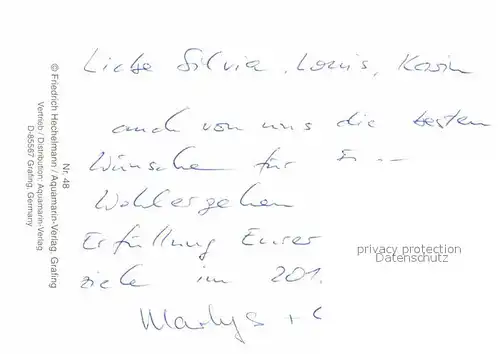 Liebe Silvia, Louis, Karin
auch von uns die besten
Wünsche für
Wohlergehen
Erfüllung Eurer
Ziele im 201
Marlys +
privacy protection
Datenschutz
Nr. 48
© Friedrich Hechelmann / Aquamarin-Verlag, Grafing
Vertrieb / Distribution: Aquamarin-Verlag
D-85567 Grafing, Germany